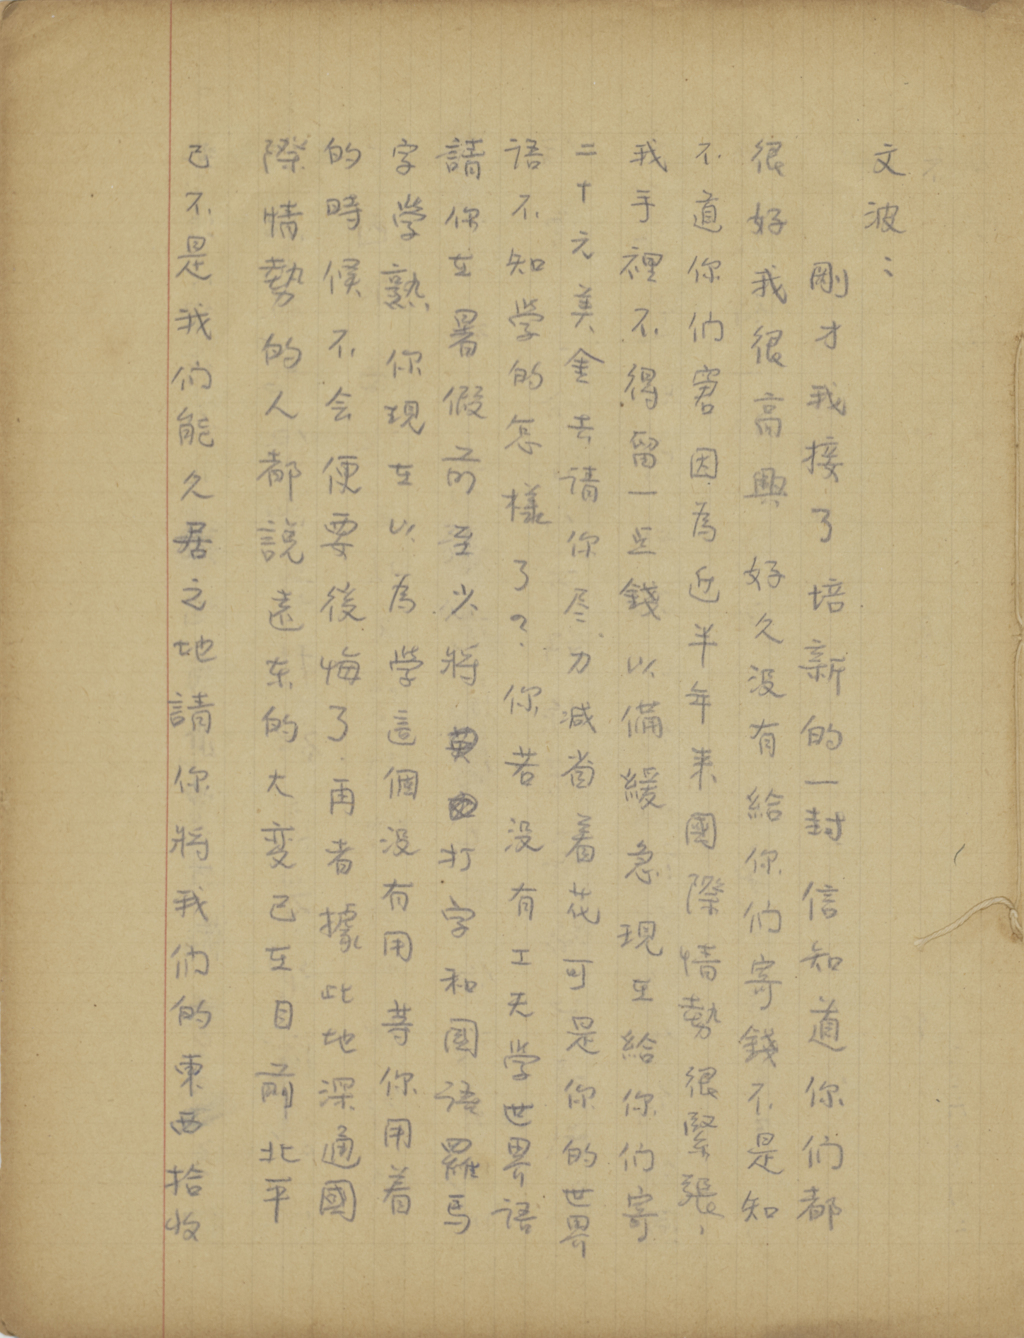 文波：
剛才我接了培新的一封信知道你们都
很好我很高興 好久没有給你们寄錢不是知
不道你们窘因為近半年来國際情勢很緊張，
我手裡不得留一点錢以備緩急現在給你们寄
二十元美金去请你尽力减省着花可是你的世界
语不知学的怎樣了？你若没有工夫学世界语
請你在暑假前至少將打字和國语羅馬
字學熟你現在以為學這個没有用等你用着
的時候不会便要後悔了再者據此地深通國
際情勢的人都說遠东的大变已在目前北平
已不是我们能久居之地請你將我们的東西拾收